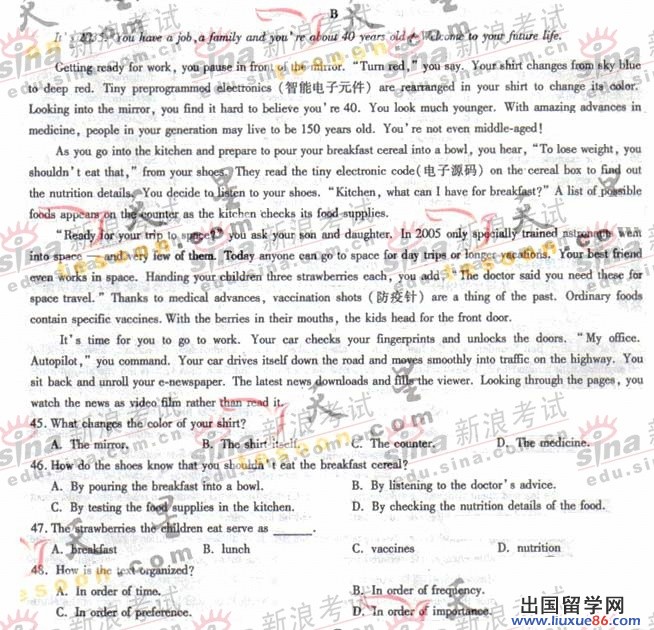 B
It's You have a job, a family and you're about 40 years old! Welcome to your future life.
Getting ready for work, you pause in front of the mirror. "Turn red," you say. Your shirt changes from sky blue
to deep red. Tiny preprogrammed electronics (智能电子元件) are rearranged in your shirt to change its color.
Looking into the mirror, you find it hard to believe you're 40. You look much younger. With amazing advances in
medicine, people in your generation may live to be 150 years old. You're not even middle-aged!
As you go into the kitchen and prepare to pour your breakfast cereal into a bowl, you hear, "To lose weight, you
shouldn't eat that," from your shoes. They read the tiny electronic code(电子源码) on the cereal box to find out
the nutrition details. You decide to listen to your shoes. "Kitchen, what can I have for breakfast?" A list of possible
foods appears on the counter as the kitchen checks its food supplies.
"Ready for your trip to space?" you ask your son and daughter. In 2005 only specially trained astronauts went
into space — and very few of them. Today anyone can go to space for day trips or longer vacations. Your best friend
even works in space. Handing your children three strawberries each, you add, "The doctor said you need these for
space travel." Thanks to medical advances, vaccination shots (防疫针) are a thing of the past. Ordinary foods
contain specific vaccines. With the berries in their mouths, the kids head for the front door.
It's time for you to go to work. Your car checks your fingerprints and unlocks the doors. "My office.
Autopilot," you command. Your car drives itself down the road and moves smoothly into traffic on the highway. You
sit back and unroll your e-newspaper. The latest news downloads and fills the viewer. Looking through the pages, you
watch the news as video film rather than read it.
45. What changes the color of your shirt?
A. The mirror. B. The shirt itself. C. The counter. D. The medicine.
46. How do the shoes know that you shouldn't eat the breakfast cereal?
A. By pouring the breakfast into a bowl. B. By listening to the doctor's advice.
C. By testing the food supplies in the kitchen. D. By checking the nutrition details of the food.
47. The strawberries the children eat serve as ______.
A. breakfast B. lunch C. vaccines D. nutrition
48. How is the text organized?
A. In order of time. B. In order of frequency.
C. In order of preference. D. In order of importance.
sina 新浪考试
edu.sina.com.cn
天星
tesoon.com
出国留学网
www.liuxue86.com